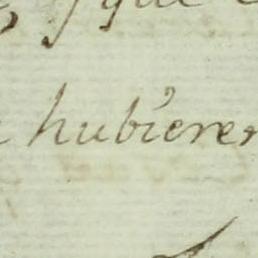 y que
hubieren